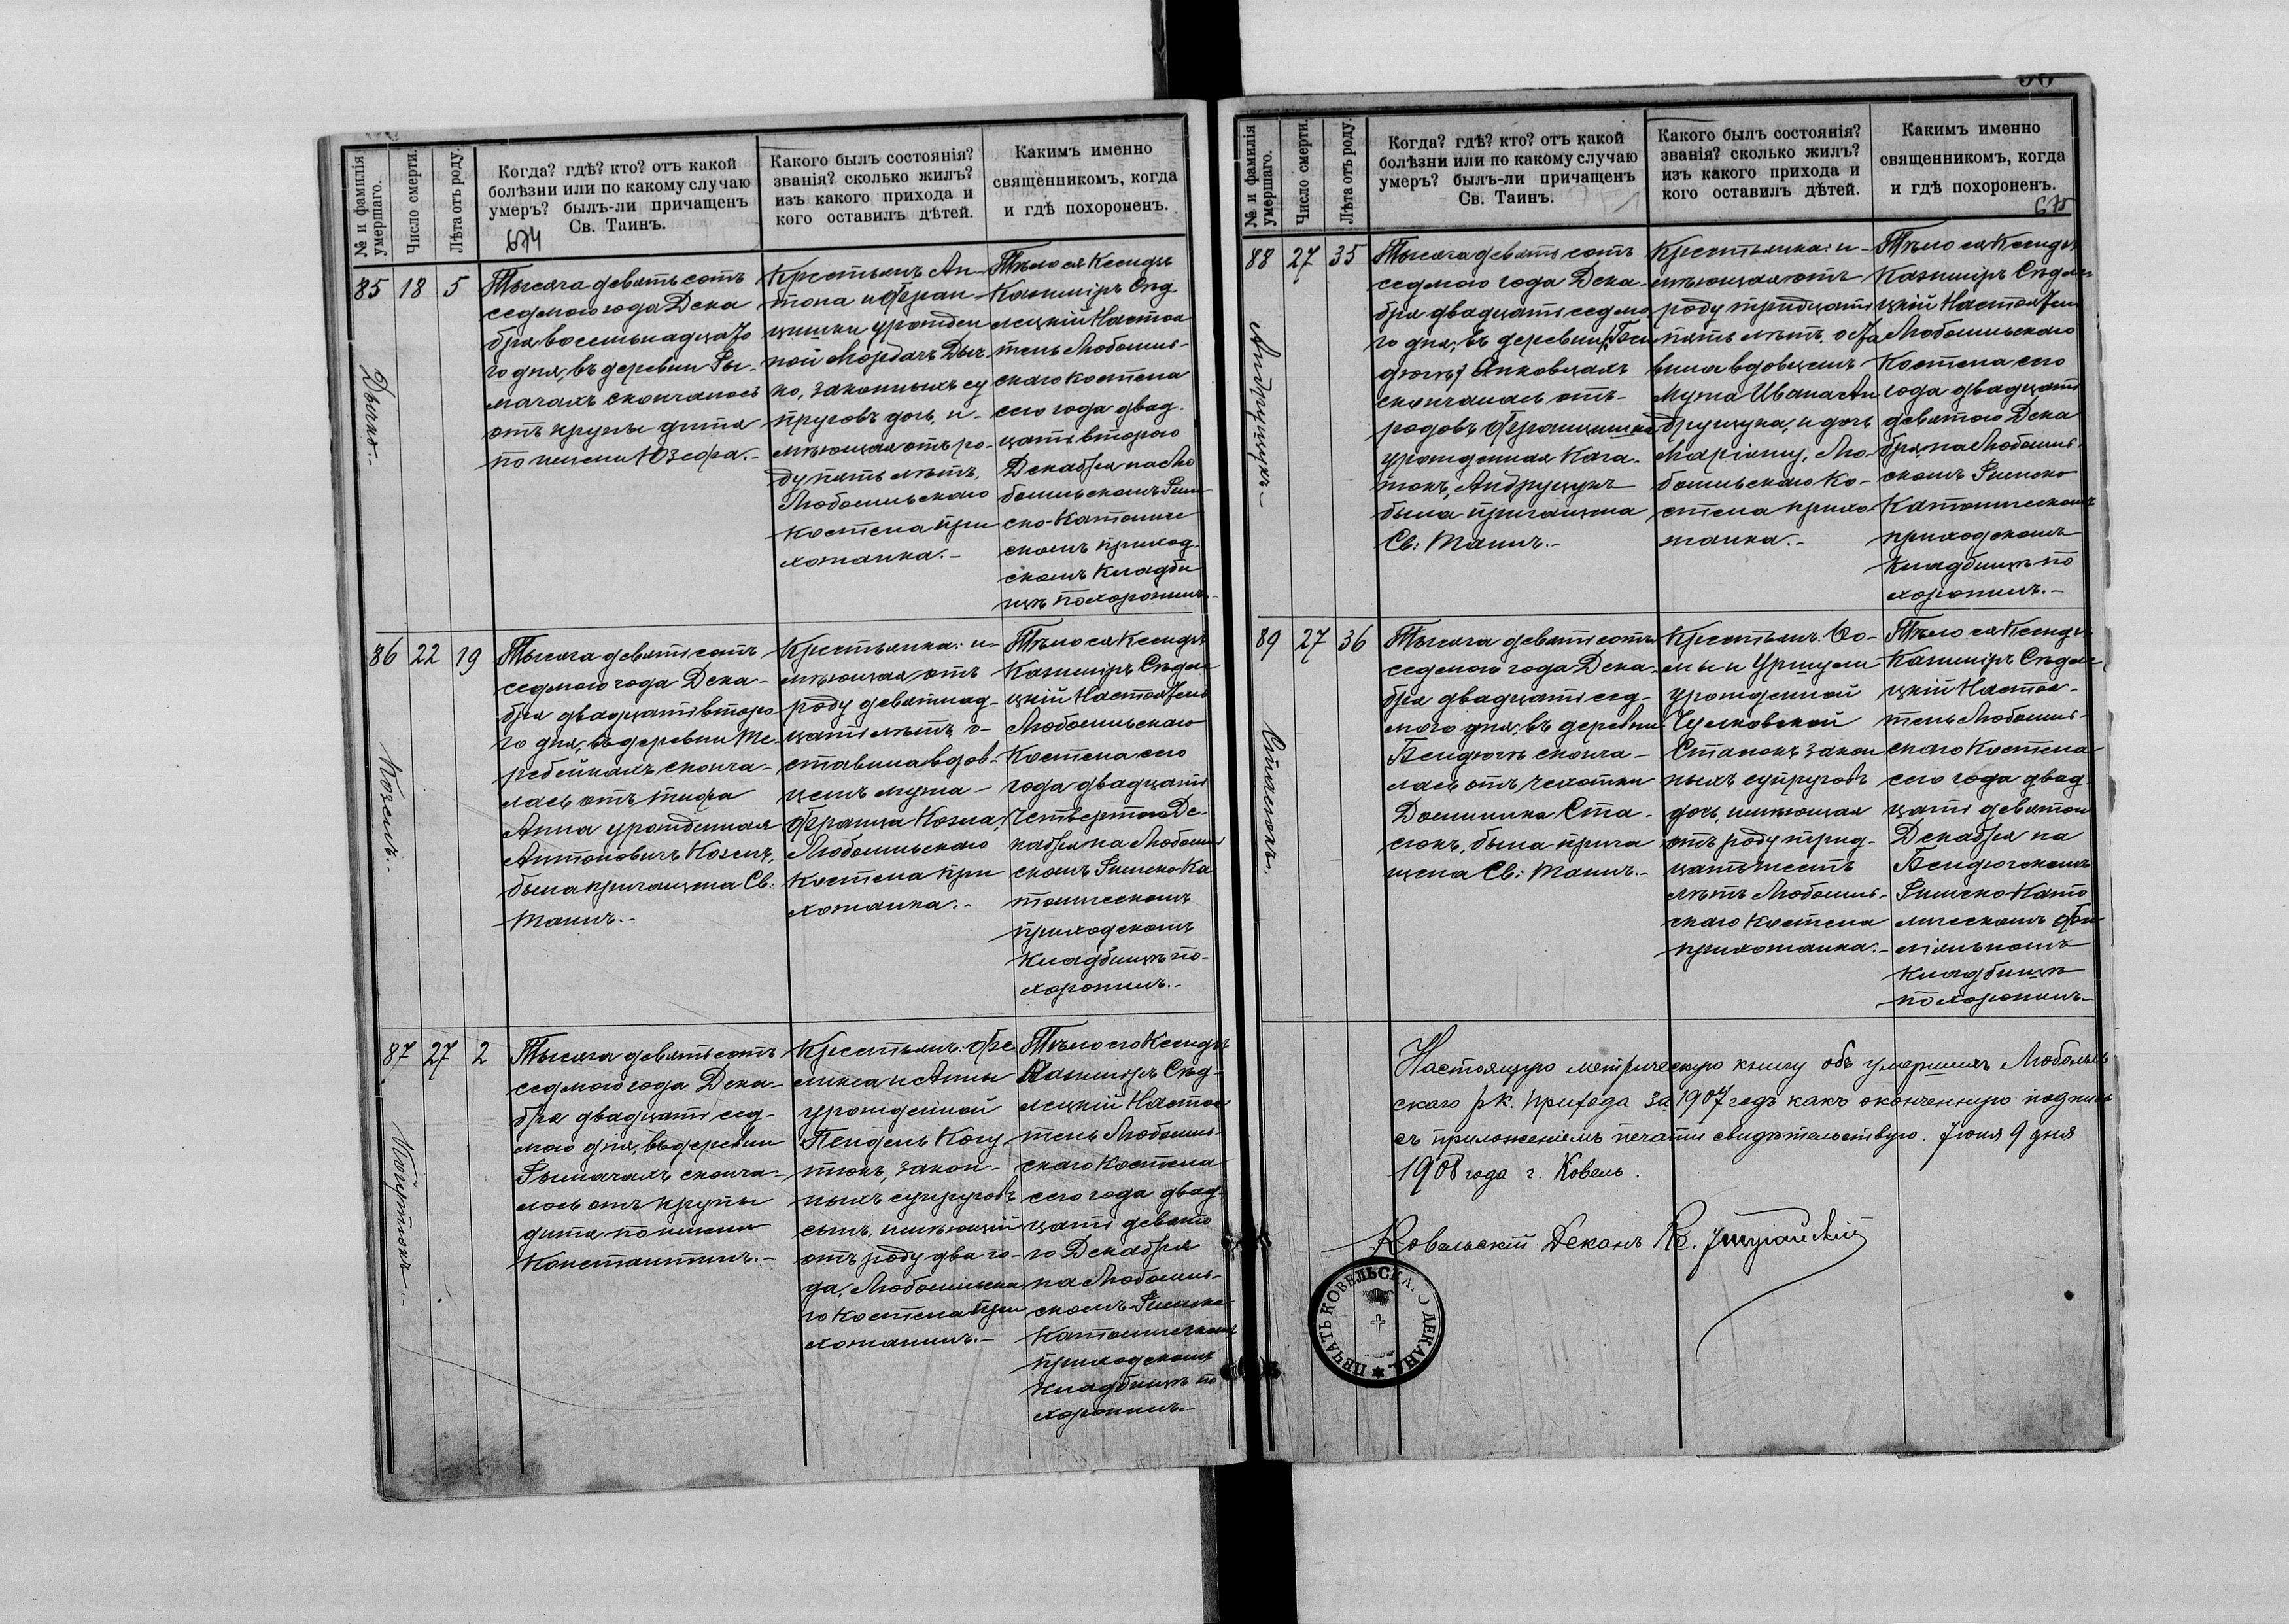 № и фамилія умершаго.
Число смерти.
Лѣта отъ роду.
Когда? гдѣ? кто? отъ какой
болѣзни или по какому случаю
умеръ? былъ-ли причащенъ
Св. Таинъ.
674
Какого былъ состоянія?
званія? сколько жилъ?
изъ какого прихода и
кого оставилъ дѣтей.
Какимъ именно
священникомъ, когда
и гдѣ похороненъ.
85 18 5
Дычко.-
Тысяча девятьсотъ
седмого года Дека
бря восемьнадцато
го дня, въ деревни Ры-
мачахъ скончалось
отъ крупы дитя
по имени Юзефа.-
Крестьянъ Ан-
тона и Фран-
цишки урожден
ной Мордачъ Дыч
ко, законныхъ су
пруговъ дочь, и-
мѣющая отъ ро-
ду пять лѣтъ,
Любомльскаго
костела при
хожанка.-
Тѣло ея Ксендзъ
Казиміръ Сѣд
лецкій Настоя
тель Любомль-
скаго костела
сего года двад-
цать второго
Декабря на Лю
бомльскомъ Рим
ско-Католиче
скомъ приход-
скомъ кладби
щѣ похоронилъ.-
86 22 19
Козелъ.-
Тысяча девятьсотъ
седмого года Дека-
бря двадцать второ
го дня, въ деревни Те-
ребейкахъ сконча-
лась отъ тифа
Анна урожденная
Антоновичъ Козелъ,
была причащена Св:
Таинъ.-
Крестьянка: и-
мѣющая отъ
роду девятнад-
цать лѣтъ о-
ставила вдов-
цемъ мужа-
Франца Козла,
Любомльскаго
костела при
хожанка.-
Тѣло ея Ксендзъ
Казиміръ Сѣдле
цкій Настоятель
Любомльскаго
костела сего
года двадцать
четвертого Де-
кабря на Любомль
скомъ Римско-Ка
толическомъ
приходскомъ
кладбищѣ по-
хоронилъ.-
87 27 2
Когутюкъ.-
Тысяча девятьсотъ
седмого года Дека-
бря двадцать сед-
мого дня, въ деревни
Рымачахъ сконча-
лось отъ крупы
дитя по имени
Константинъ.-
Крестьянъ: Фе
ликса и Анны
урожденной
Пендель Когу
тюкъ, закон-
ныхъ супруговъ
сынъ, имѣющій
отъ роду два го-
да, Любомльска
го костела при
хожанинъ.-
Тѣло его Ксендзъ
Казиміръ Сѣд-
лецкій Настоя
тель Любомль-
скаго костела
сего года двад-
цать девято
го Декабря
на Любомль-
скомъ Римско
Католическомъ
приходскомъ
кладбищѣ по
хоронилъ.-
Когда? гдѣ? кто? отъ какой
болѣзни или по какому случаю
умеръ? былъ-ли причащенъ
Св. Таинъ.
Какого былъ состоянія?
званія? сколько жилъ?
изъ какого прихода и
кого оставилъ дѣтей.
Какимъ именно
священникомъ, когда
и гдѣ похороненъ.
675
№ и фамилія умершаго.
Число смерти.
Лѣта отъ роду.
88 27 35
Андрущукъ-
Тысяча девятьсотъ
седмого года Дека-
бря двадцать седмо
го дня, въ деревни
Янковцахъ
скончалась отъ-
родовъ Францишка
урожденная
Андрущукъ
была причащена
Св: Таинъ.-
Крестьянка: и-
мѣющая отъ
роду тридцать
пять лѣтъ, оста
вила вдовцемъ
мужа Ивана Ан
друщука, и дочь
Маріанну, Лю-
бомльскаго ко-
стела прихо-
жанка.-
Тѣло ея Ксендзъ
Казиміръ Сѣдле
цкій Настоятель
Любомльскаго
костела сего
года двадцать
девятого Дека
бря на Любомль-
скомъ Римско
Католическомъ
приходскомъ
кладбищѣ по
хоронилъ.-
89 27 36
Стасюкъ.-
Тысяча девятьсотъ
седмого года Дека-
бря двадцать сед-
мого дня, въ деревни
Бендюгѣ сконча-
лась отъ чехотки
Доминика Ста-
сюкъ, была прича
щена Св: Таинъ.-
Крестьянъ: Ѳо-
мы и Уршули
урожденной
Стасюкъ закон
ныхъ супруговъ
дочь, имѣющая
отъ роду трид-
цать шесть
лѣтъ Любомль-
скаго костела
прихожанка.-
Тѣло ея Ксендзъ
Казиміръ Сѣдле
цкій Настоя-
тель Любомль-
скаго костела
сего года двад-
цать девятого
Декабря на
Бендюгскомъ
Римско Като
лическомъ фи
ліальномъ
кладбищѣ
похоронилъ.-
Настоящую метрическую книгу объ умершихъ Любомль
скаго р.к. прихода за 1907 годъ какъ оконченную подписью
съ приложеніемъ печати свидѣтельствую. Іюня 9 дня
1908 года г. Ковель.
Ковельскій Деканъ
ПЕЧАТЬ КОВЕЛЬСКАГО ДЕКАНА